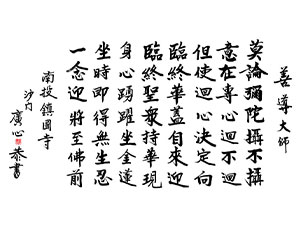 善導大師
莫論彌陀攝不攝
意在專心迴不迴
但使迴心決定向
臨終華蓋自來迎
臨終聖眾持華現
身心踴躍坐金蓮
坐時即得無生忍
一念迎將至佛前
南投鎮國寺
沙門
廣心恭書